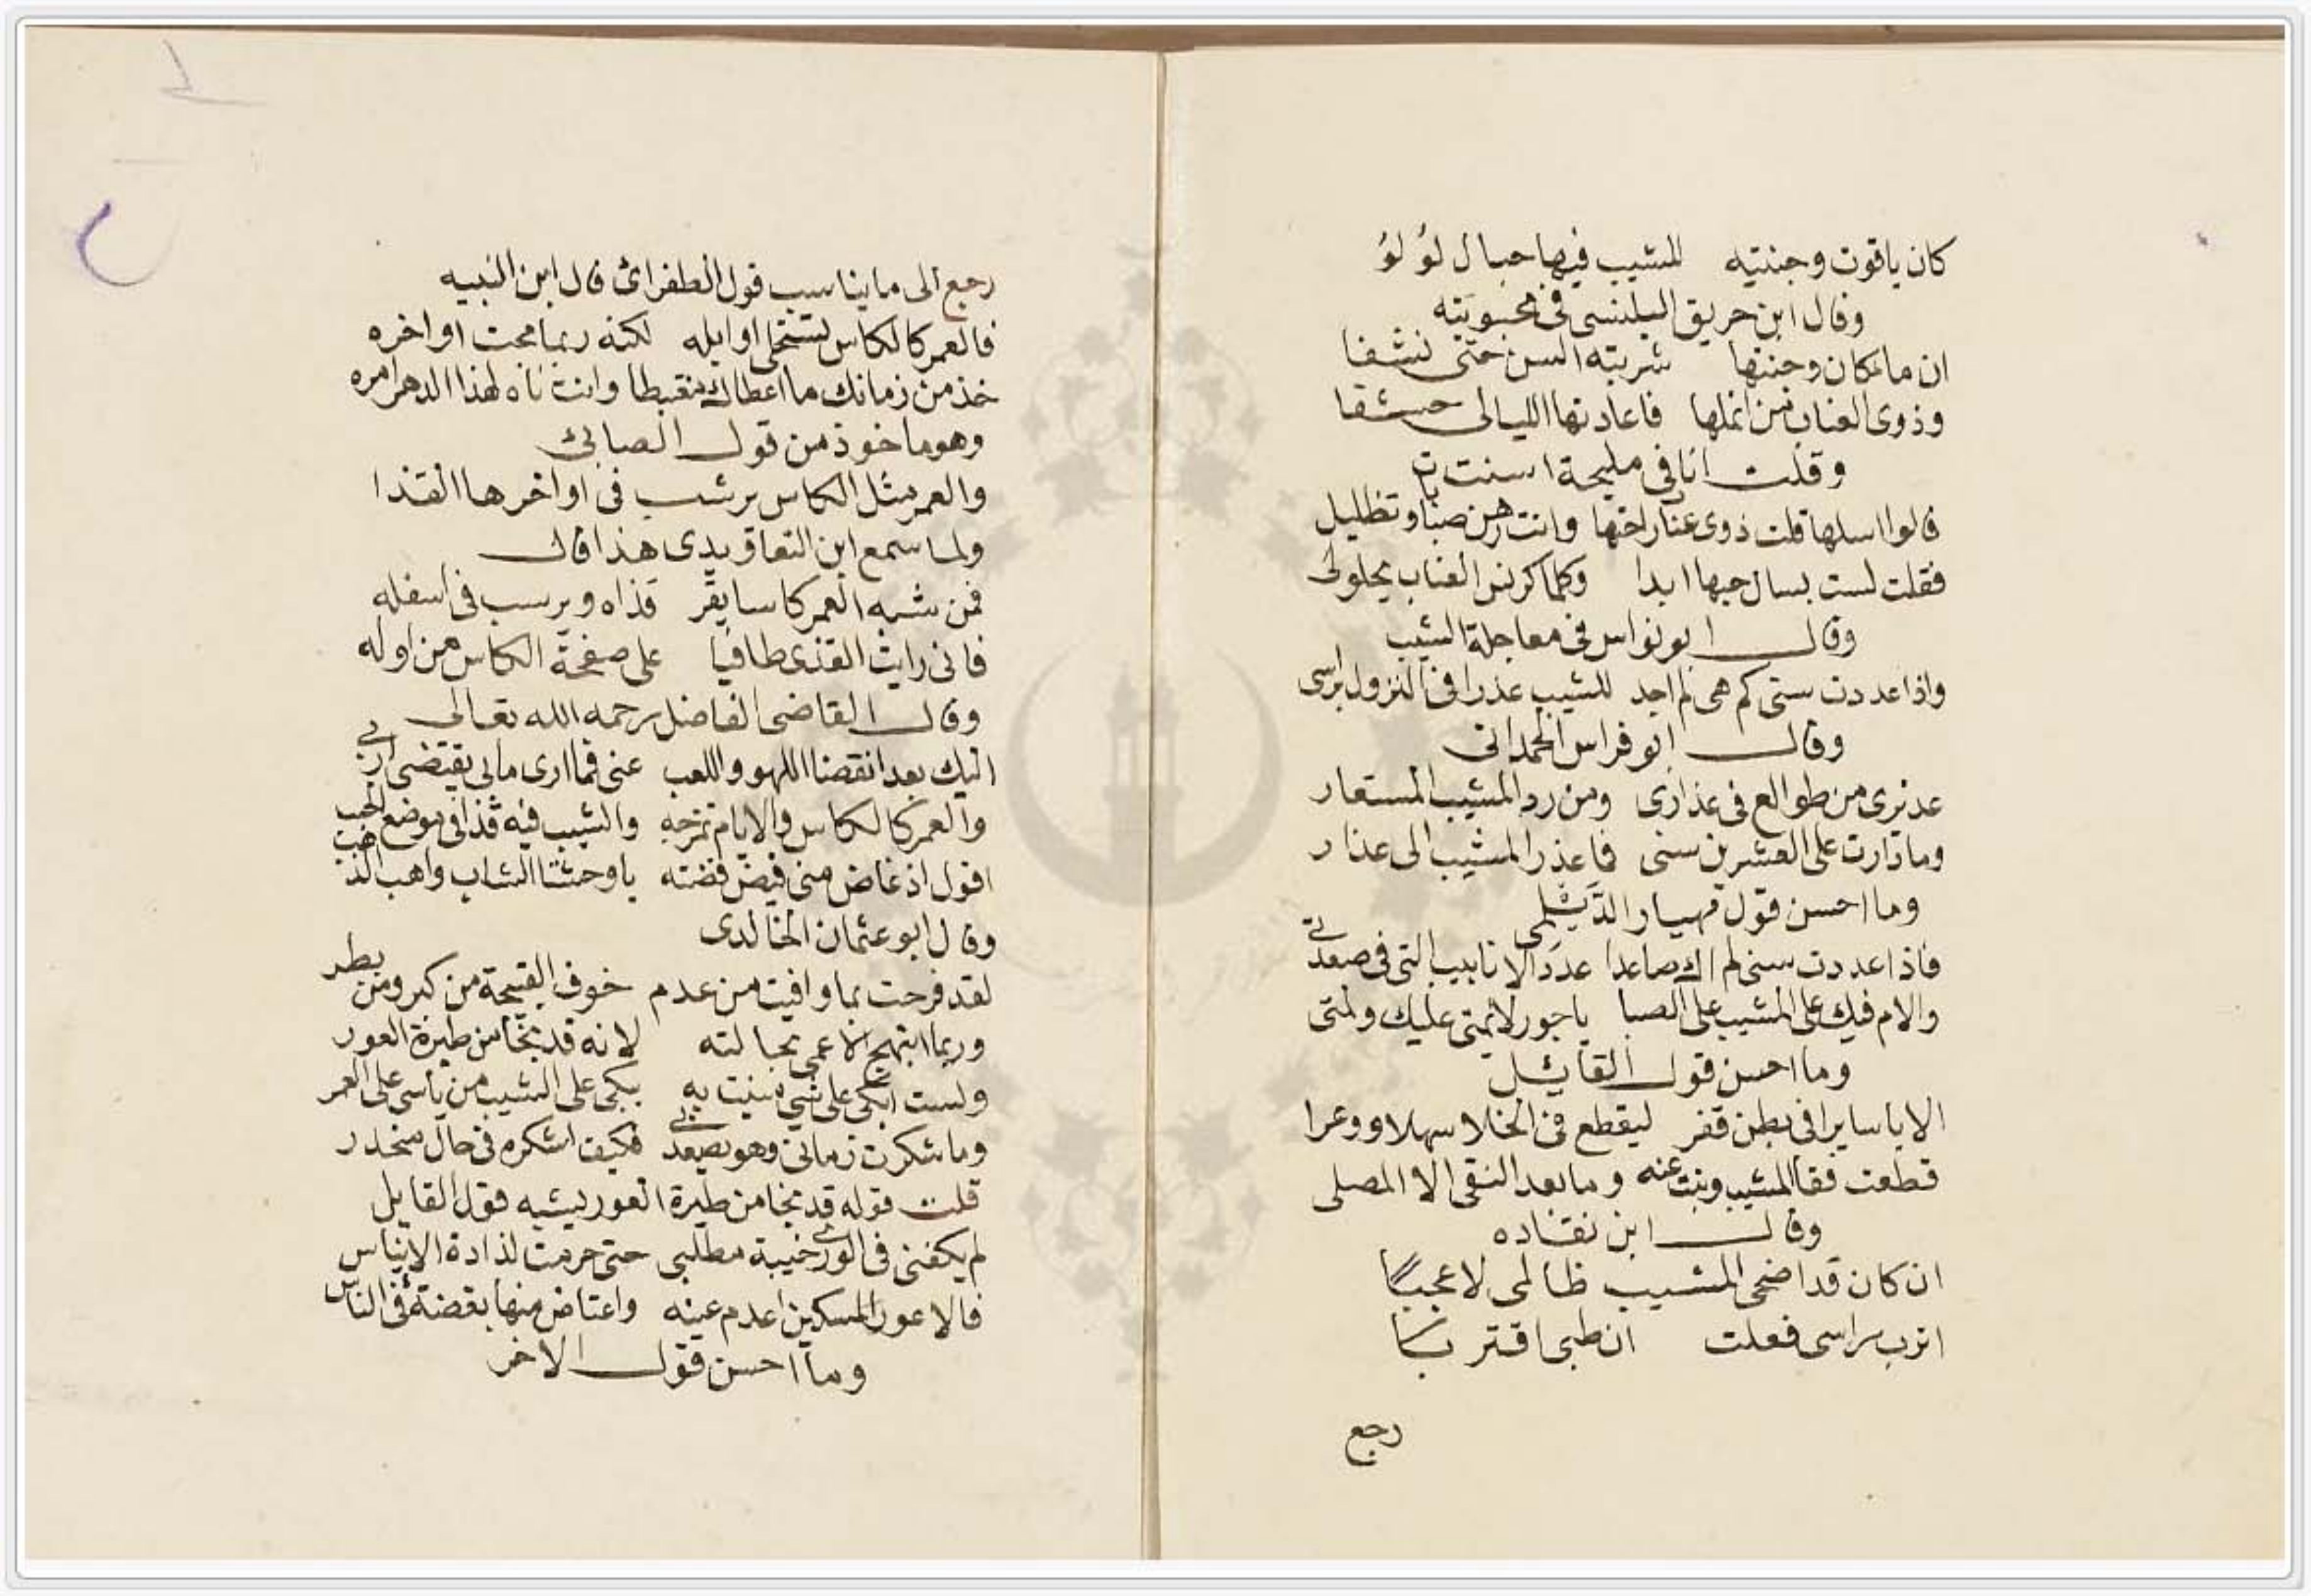 كان ياقوت وجنتيه للمشيب فيها حبال لؤلؤ
وقال ابن حريق البلنسي في محبوبته
ان ماء كان وجنتها شربته السن حتى نشفا
وذوى العناب من انملها فاعادتها الليالى حشفا
وقلت انا في مليحة اسنت
قالوا اسلها قلت ذوى عناب راحتها وانت رهن صبا وتظليل
فقلت لست بسال حبها ابدا وكلما كرنش العناب يحلولى
وقال ابو نواس في معاجلة الشيب
واذا عددت سنى كم هى لم اجد للشيب عذرا في النزول براسى
وقال ابو فراس الحمدانى
عذيرى من طوالع في عذارى ومن رد المشيب المستعار
وما زارت على العشرين سنى فما عذر المشيب الى عذار
وما احسن قول مهيار الديلمى
فاذا عددت سنى لم اك صاعدا عدد الانابيب التى في صعدتى
والام فيك على المشيب على الصبا يا جور لائمتى عليك ولمتى
وما احسن قول القايل
الا يا سايرا في بطن قفر ليقطع في الخلا سهلا ووعرا
قطعت فقا المشيب وبنت عنه وما بعد النقى الا المصلى
وقال ابن نقاده
ان كان قد اضحى المشيب ظالمى لا عجبا
اترب براسى فعلت ان طبى اقتربا
رجع
رجع الى ما يناسب قول الطغرائ قال ابن النبيه
فالعمر كالكاس تستحلى اوايله لكنه ربما مجت اواخره
خذ من زمانك ما اعطاك مغتبطا وانت ناه لهذا الدهر امره
وهو ماخوذ من قول الصابئ
والعمر مثل الكاس يرسب في اواخرها القذا
ولما سمع ابن التعاويدى هذا قال
فمن شبه العمر كاسا يقر قذاه ويرسب في اسفله
فانى رايت القذى طافيا على صفحة الكاس من اوله
وقال القاضى الفاضل رحمه الله تعالى
اليك بعد انقضنا اللهو واللعب عنى فما ارى مابى يقتضى اربى
والعمر كالكاس والايام تمزجه والشيب فيه قذا في موضع الحبب
اقول اذ غاض منى فيض فضته يا وحشتا الشباب واهب الذهب
وقال ابو عثمان الخالدى
لقد فرحت بما وافيت من عدم خوف القبيحة من كبر ومن بطر
وربما ابتهج الاعمى بحالته لانه قد نجا من طيرة العور
ولست ابكى على شى منيت به يبكى على الشيب من ياسى على العمر
وما شكرت زمانى وهو يصعدبى فكيف اشكره في حال منحدر
قلت قوله قد نجا من طيرة العور يشبه قول القايل
لم يكفنى في الورى خيبة مطلبى حتى حرمت لذاذة الايناس
فالاعور المسكين اعدم عينه واعتاض منها بقضة في الناس
وما احسن قول الاخر